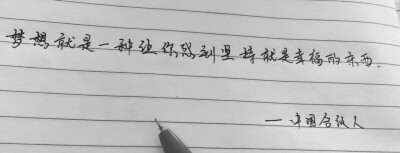 梦想就是一种让你感到坚持就是幸福的东西.
—中国合伙人